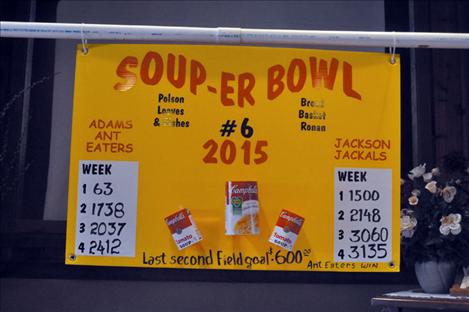 SOUP-ER BOWL
Polson
Loaves
& Fishes
Bread
Basket
Ronan
#6
2015
ADAMS
ANT
EATERS
JACKSON
JACKALS
WEEK
1 63
2 1738
3 2037
4 2412
WEEK
1 1500
2 2148
3 3060
4 3135
Campbell's
Campbell's
Tomato
SOUP
Campbell's
Tomato
SOUP
Last second Field goal $600.00
Ant Eaters WIN